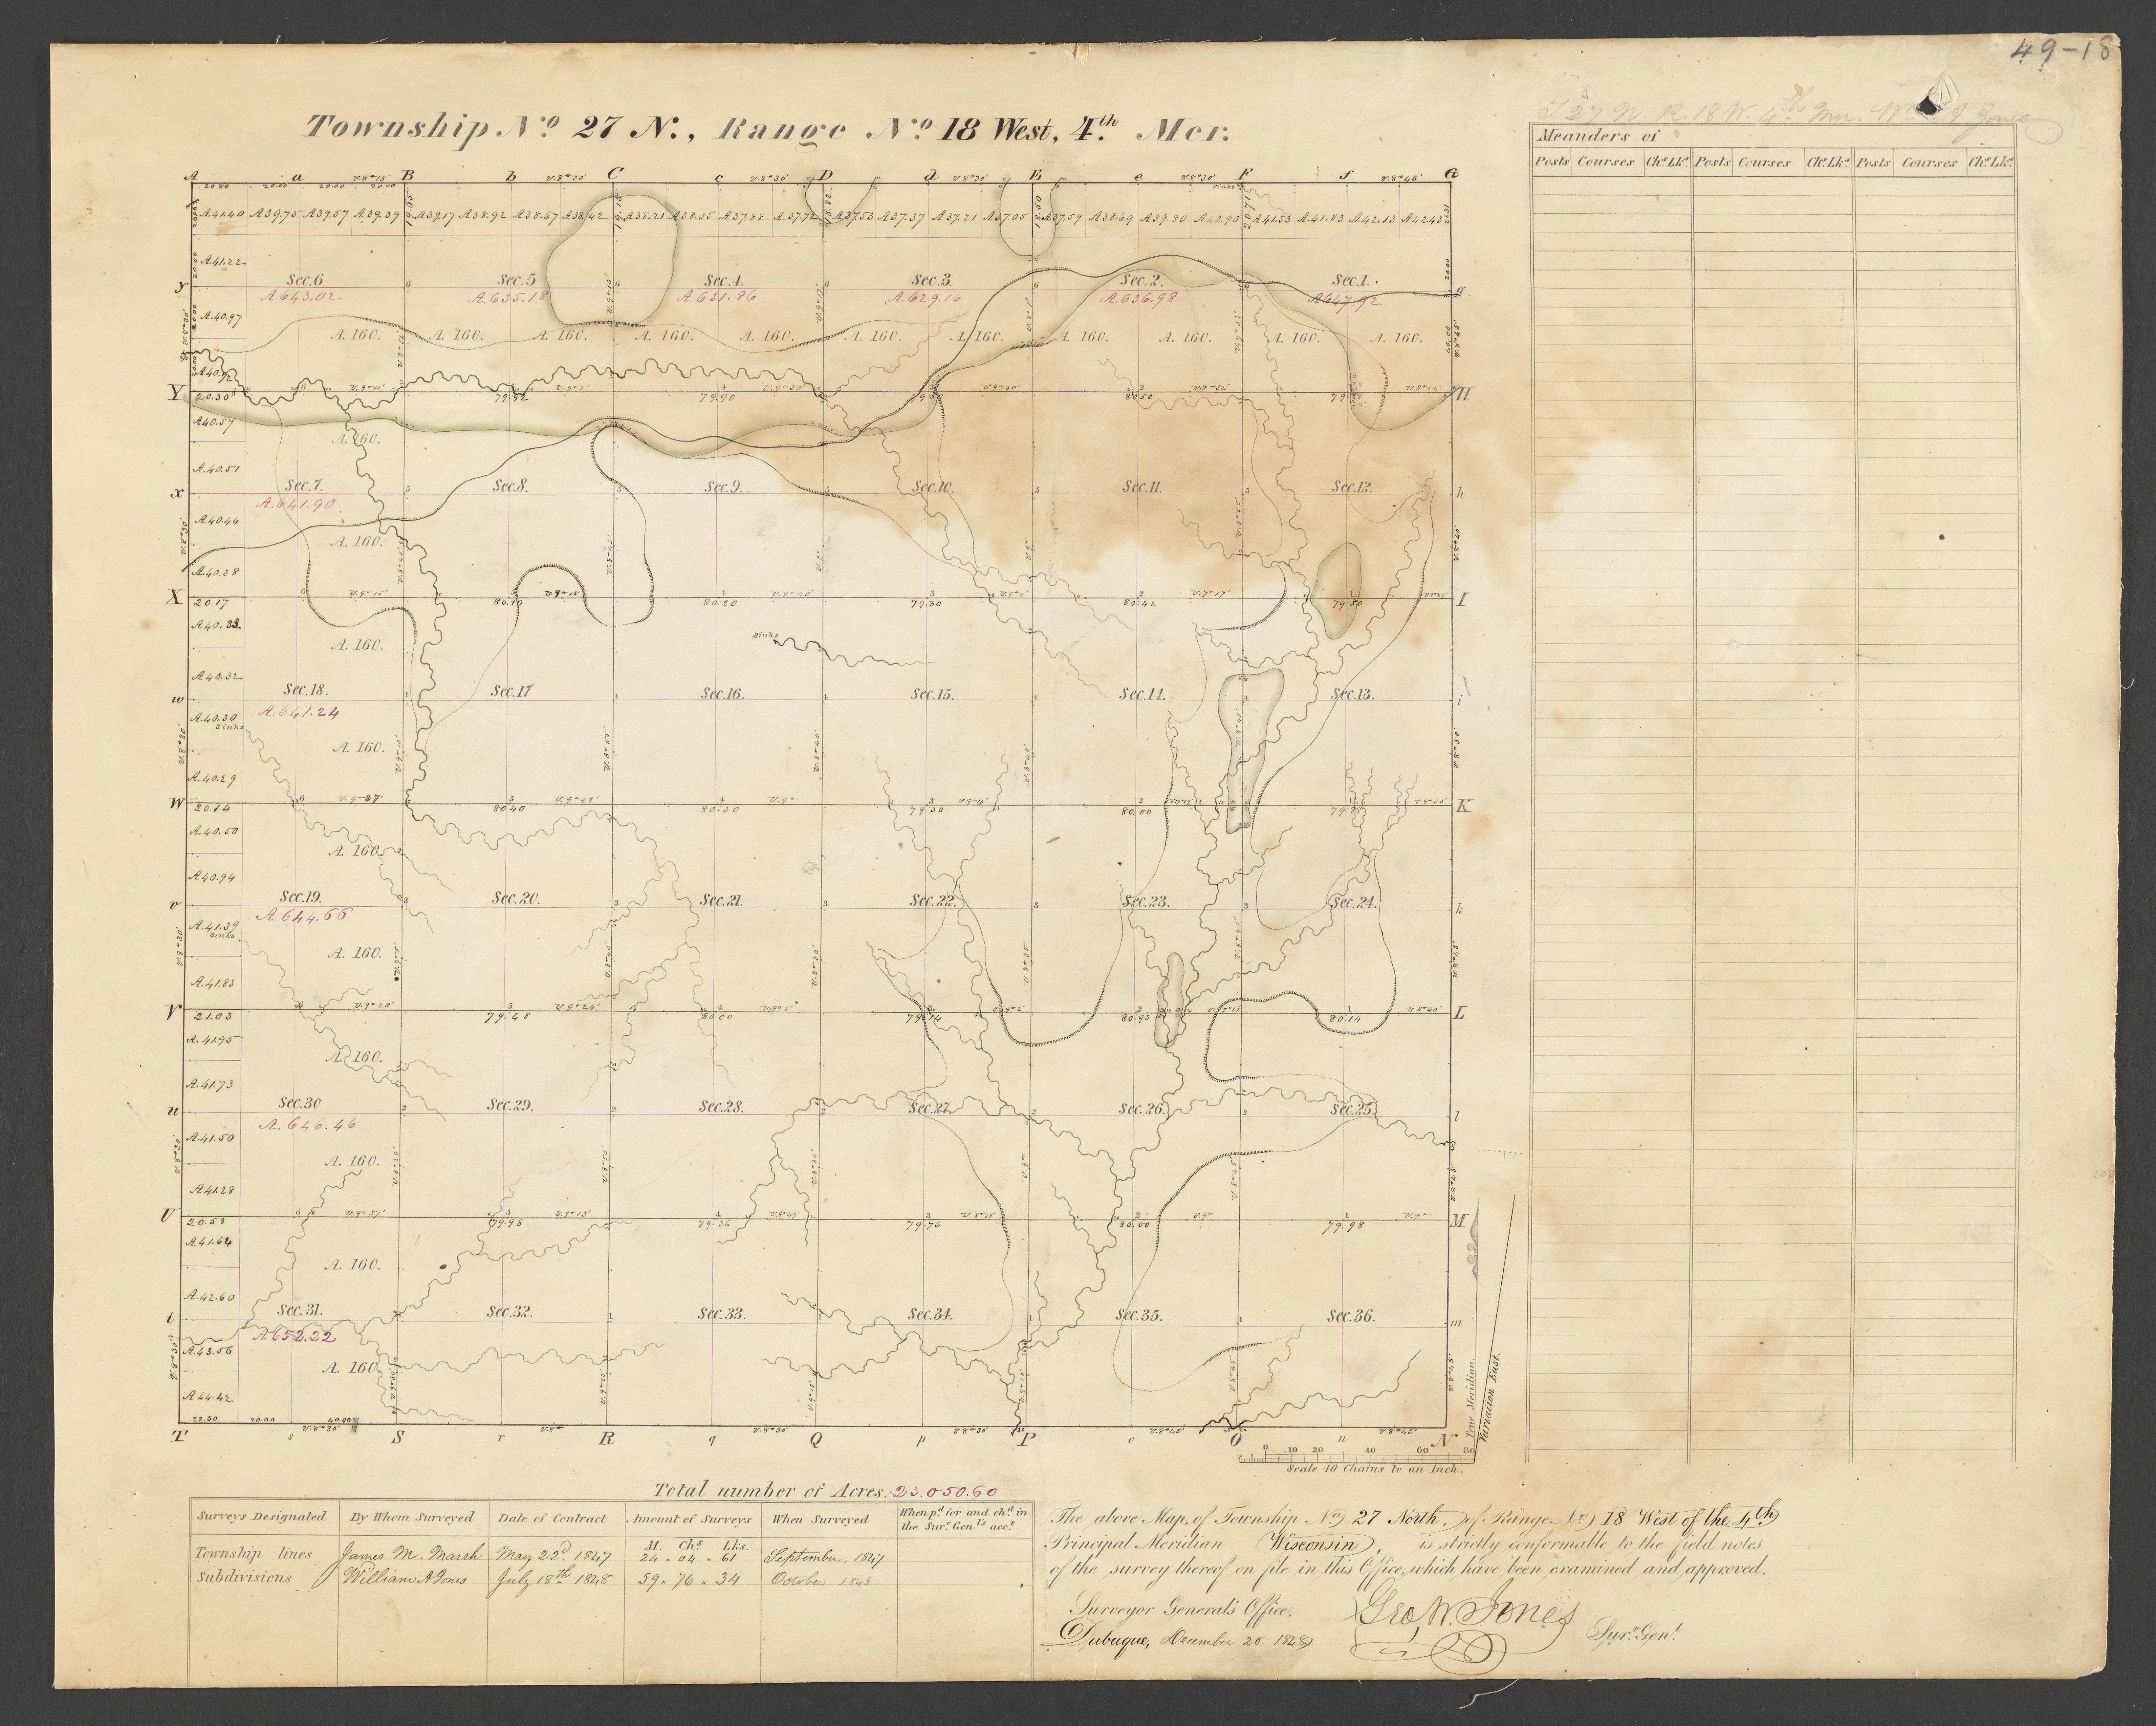 49-18
T 27 N. R. 18 W. 4th Mer. Jones
Township No. 27 N., Range No. 18 West, 4th Mer.
Meanders of
Posts Courses Chs Lks Posts Courses Chs Lks Posts Courses Chs Lks
A a B b C c D d E e F f G
A.41.40 A.39.75 A.39.57 A.39.39 A.39.17 A.38.92 A.38.67 A.38.42 A.38.21 A.38.05 A.37.88 A.37.72 A.37.53 A.37.37 A.37.21 A.37.05 A.37.59 A.38.69 A.39.80 A.40.90 A.41.53 A.41.83 A.42.13 A.42.43
A.41.22
Sec.6 Sec.5 Sec.4 Sec.3 Sec.2. Sec.1.
y A.643.02 A.635.18 A.631.86 A.629.16 A.636.98 A.647.92 g
A.40.97
A.160. A.160. A.160. A.160. A.160. A.160. A.160. A.160. A.160. A.160. A.160.
Y 20.30 79.92 79.90 H
A.40.57
A.160.
A.40.51
Sec.7. Sec.8. Sec.9. Sec.10. Sec.11. Sec.12.
x A.641.90 h
A.40.44
A.160.
A.40.38
X 20.17 80.10 80.20 79.30 80.42 79.50 I
A.40.33.
A.160.
Sinks
A.40.32
Sec.18. Sec.17 Sec.16. Sec.15. Sec.14. Sec.13.
w A.641.24 i
A.40.30
Sinks
A.160.
A.40.29
W 20.14 80.40 80.30 79.50 80.00 K
A.40.50
A.160.
A.40.94
Sec.19. Sec.20. Sec.21. Sec.22. Sec.23. Sec.24.
v A.644.66 k
A.41.39
Sinks
A.160.
A.41.83
V 21.03 79.48 80.00 79.74 80.93 80.14 L
A.41.95
A.160.
A.41.73
Sec.30 Sec.29. Sec.28. Sec.27. Sec.26. Sec.25.
u A.646.46 l
A.41.50
A.160.
A.41.28
U 20.58 79.98 79.36 79.76 80.00 79.98 M
A.41.64
A.160.
A.42.60
Sec.31. Sec.32. Sec.33. Sec.34. Sec.35. Sec.36.
t A.652.22 m
A.43.56
A.160
A.44.42
22.50 20.00 40.00
T s S r R q Q p P o O n N
True Meridian.
Variation East.
0 10 20 40 60 80
Scale 40 Chains to an Inch.
Total number of Acres. 23.050.60
Surveys Designated By Whom Surveyed Date of Contract Amount of Surveys When Surveyed When pd for and chd in the Surr Genls acct
M. Chs Lks.
Township lines James M. Marsh May 22d 1847 24 " 04 " 61 September. 1847
Subdivisions William A Jones July 18th 1848 59 " 76 " 34 October 1848
The above Map, of Township No. 27 North, of Range No. 18 West of the 4th
Principal Meridian Wisconsin, is strictly conformable to the field notes
of the survey thereof on file in this Office, which have been examined and approved.
Surveyor General's Office.
Dubuque, December 20. 1848
Geo. W. Jones
Surr Genl